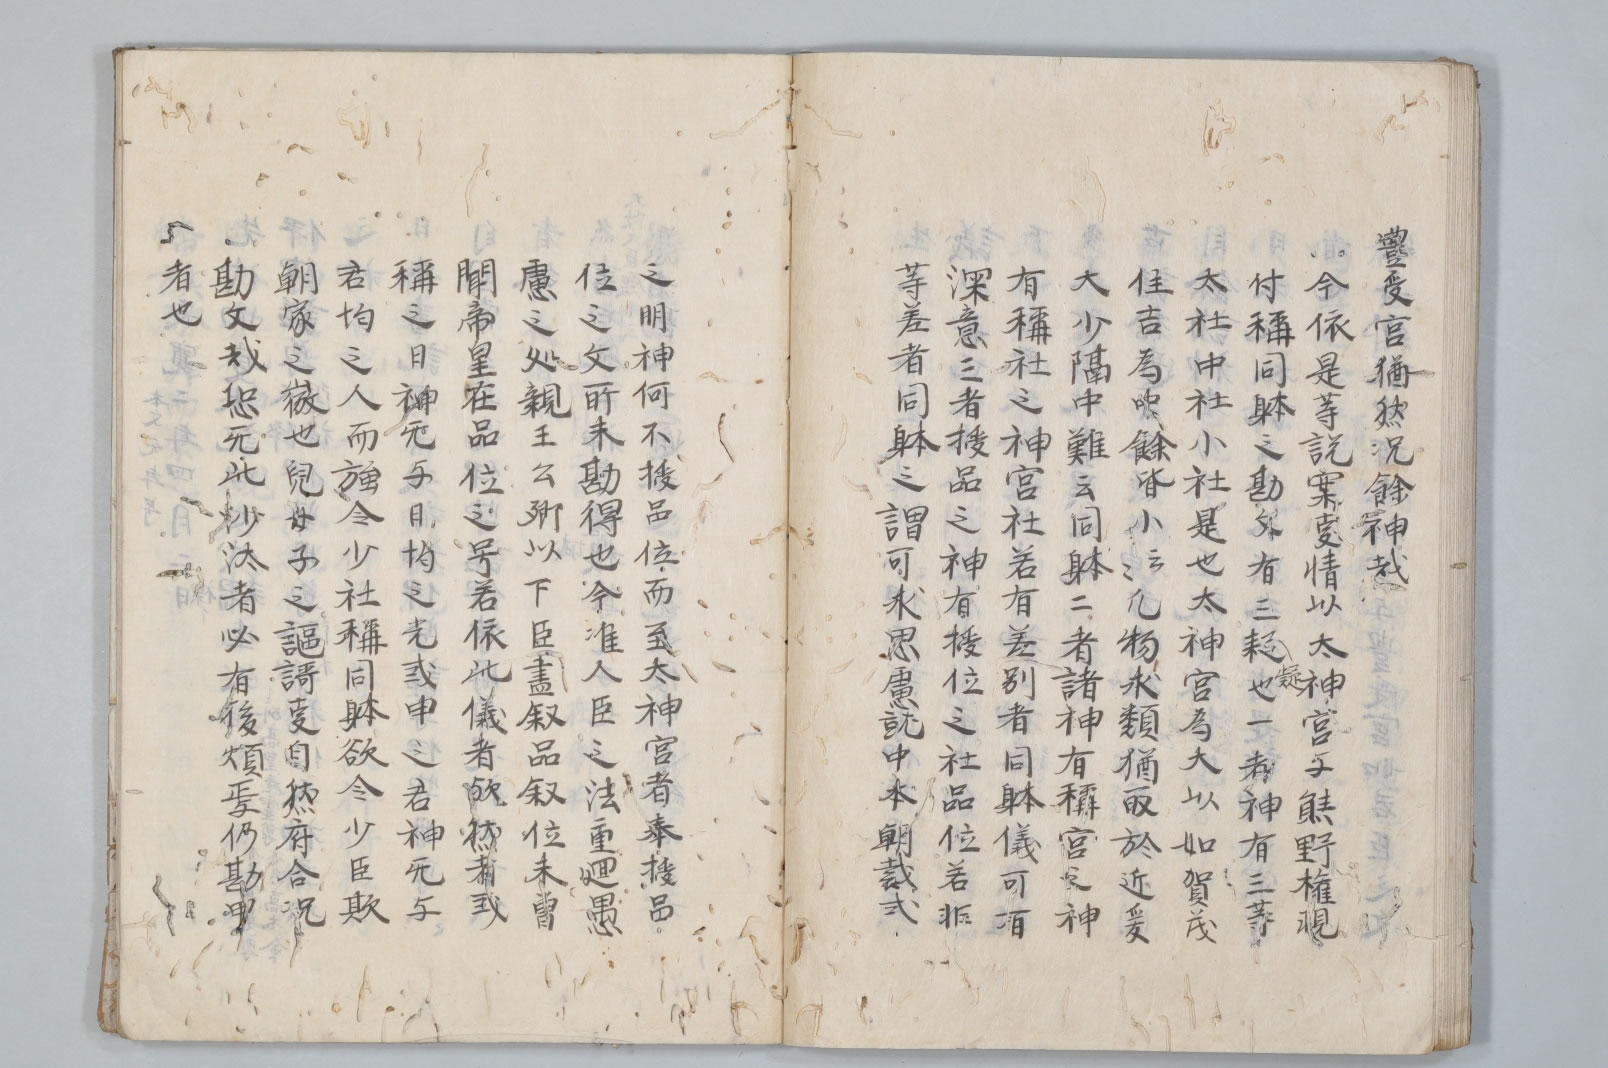 豊受宮猶然況餘神哉
今依是等説案事情以太神宮与熊野権現
付稱同躰之勘外有三疑也一者神有三等
太社中社小社是也太神宮為大以如賀茂
住吉為中餘皆小云々凡物求類猶取於近爰
大少隔中難云同躰二者諸神有稱宮之神
有稱社之神宮社若有差別者同躰儀可有
深意三者授品之神有授位之社品位若非
等差者同躰之謂可求思慮就中本朝裁式
之明神何不授品位而至太神宮者奉授品
位之文所未勘得也今准人臣之法重廻愚
慮之処親王公卿以下臣盡叙品叙位未曽
聞帝皇在品位之号若依此儀者欤然者或
稱之日神無与日均之光或申之君神無与
君均之人而強令少社稱同躰欲令少臣欺
朝家之徴也兒母子之謳謌事自然府合況
勘文哉恐死此沙汰者必有後煩乎仍勘申
者也